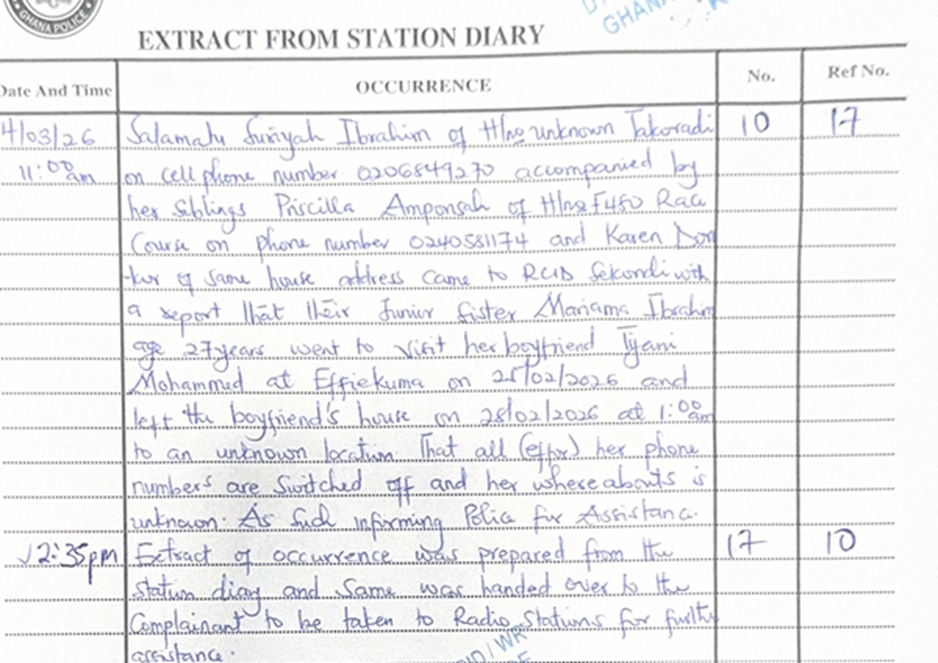 GHANA POLICE
GHANA
EXTRACT FROM STATION DIARY
Date And Time OCCURRENCE No. Ref No.
4/03/26 Salamatu Suriyah Ibrahim of H/no unknown Takoradi 10 17
11:00am on cell phone number 0206849270 accompanied by
her siblings Priscilla Amponsah of H/no F480 Race
Course on phone number 0240581174 and Karen Don
kor of same house address came to RCID Sekondi with
a report that their Junior sister Mariama Ibrahim
age 27years went to visit her boyfriend Tijani
Mohammed at Effiekuma on 25/02/2026 and
left the boyfriend's house on 28/02/2026 at 1:00am
to an unknown location. That all (effor) her phone
numbers are switched off and her whereabouts is
unknown. As such informing Police for Assistance.
12:35pm Extract of occurrence was prepared from the 17 10
station diary and same was handed over to the
Complainant to be taken to Radio Stations for further
assistance.